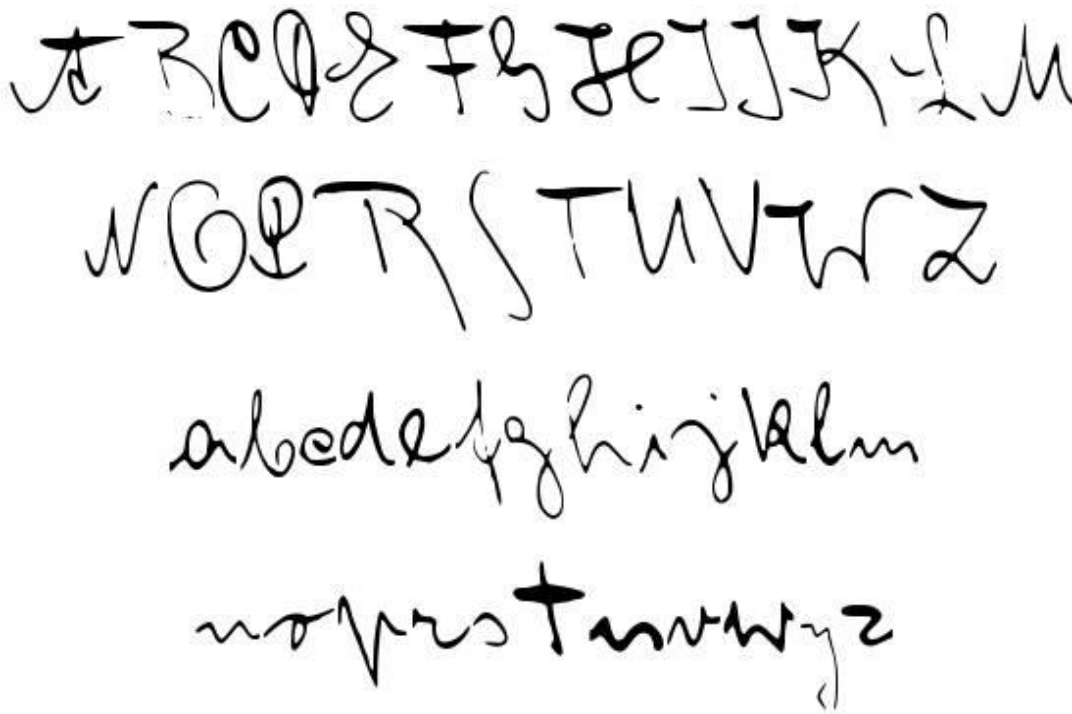 ABCDEFGHIJKLM
NOPRSTUVWZ
abcdefghijklm
noprstuvwyz